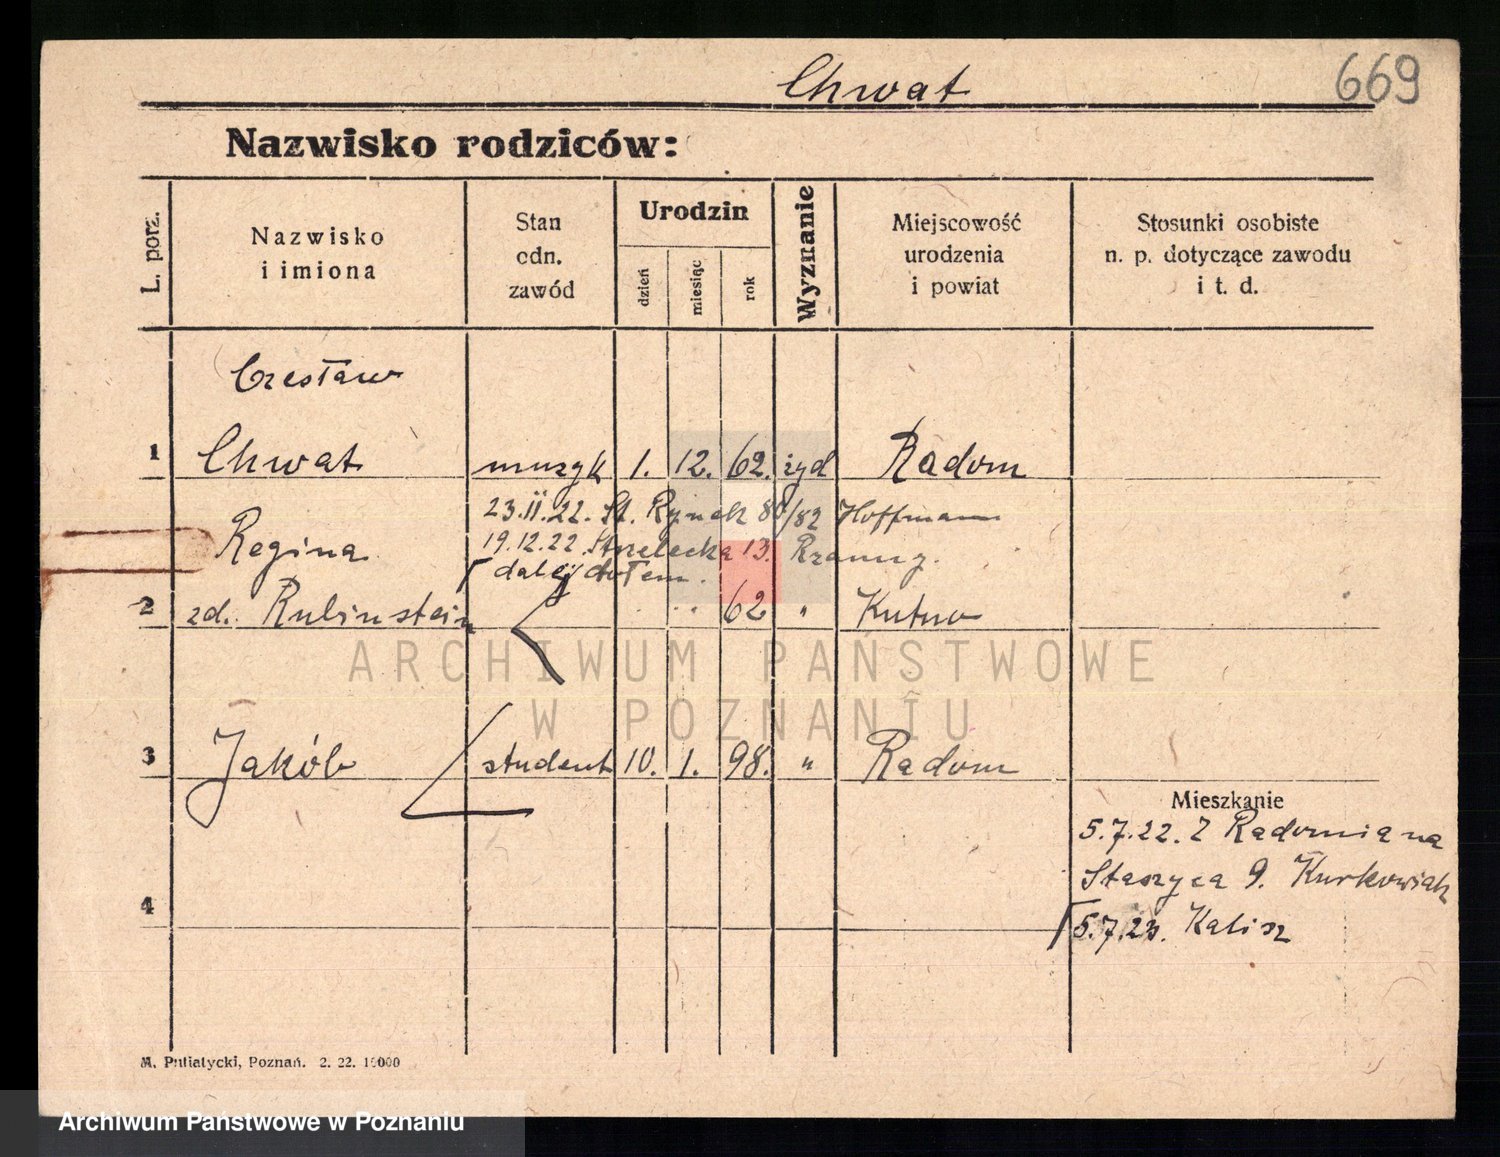 Chwat
669
Nazwisko rodziców:
L. porz.
Nazwisko
i imiona
Stan
cdn.
zawód
Urodzin
dzień
miesiąc
rok
Wyznanie
Miejscowość
urodzenia
i powiat
Stosunki osobiste
n. p. dotyczące zawodu
i t. d.
Czesław
1 Chwat muzyk 1. 12. 62. żyd Radom
23.II.22. St. Rynek 80/82 Hoffmann
Regina 19.12.22 Strzelecka 13.
dalej dołem.
2 zd. Rubinstein 62 " Kutno
ARCHIWUM PAŃSTWOWE
W POZNANIU
3 Jakób student 10. 1. 98. " Radom
Mieszkanie
5.7.22. Z Radomia na
Staszyca 9. Kurkowiak
4
5.7.23. Kalisz
M. Putiatycki, Poznań. 2. 22. 10000
Archiwum Państwowe w Poznaniu